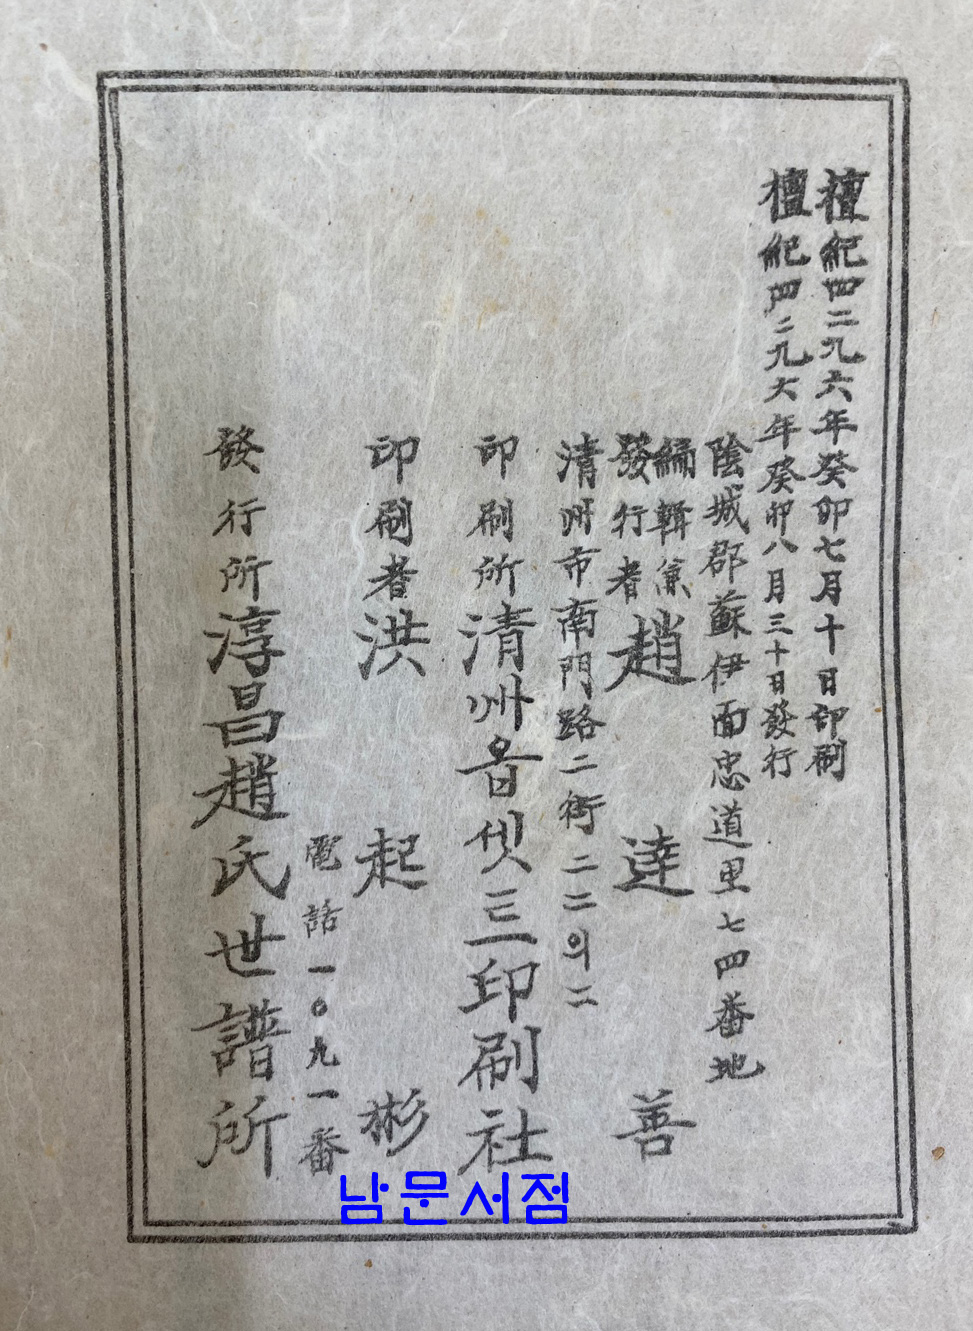 檀紀四二九六年癸卯七月十日印刷
檀紀四二九六年癸卯八月三十日發行
陰城郡蘇伊面忠道里七四番地
編輯兼
發行者 趙達善
淸州市南門路二街二二의二
印刷所 淸州음성三印刷社
印刷者 洪起彬
電話一〇九一番
發行所 淳昌趙氏世譜所
남문서점